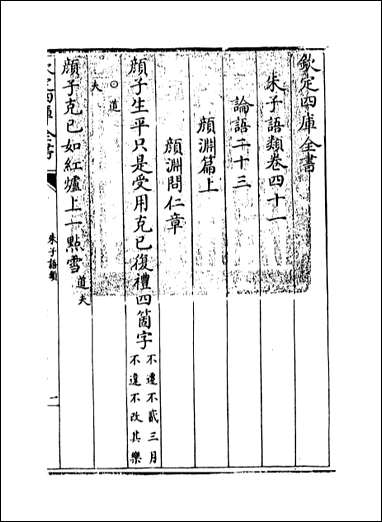 欽定四庫全書
朱子語類卷四十一
論語二十三
顏淵篇上
顏淵問仁章
顏子生平只是受用克己復禮四箇字不遷不貳三月
不違不改其樂
○道
夫
顏子克己如紅爐上一點雪道夫
欽定四庫全書
朱子語類